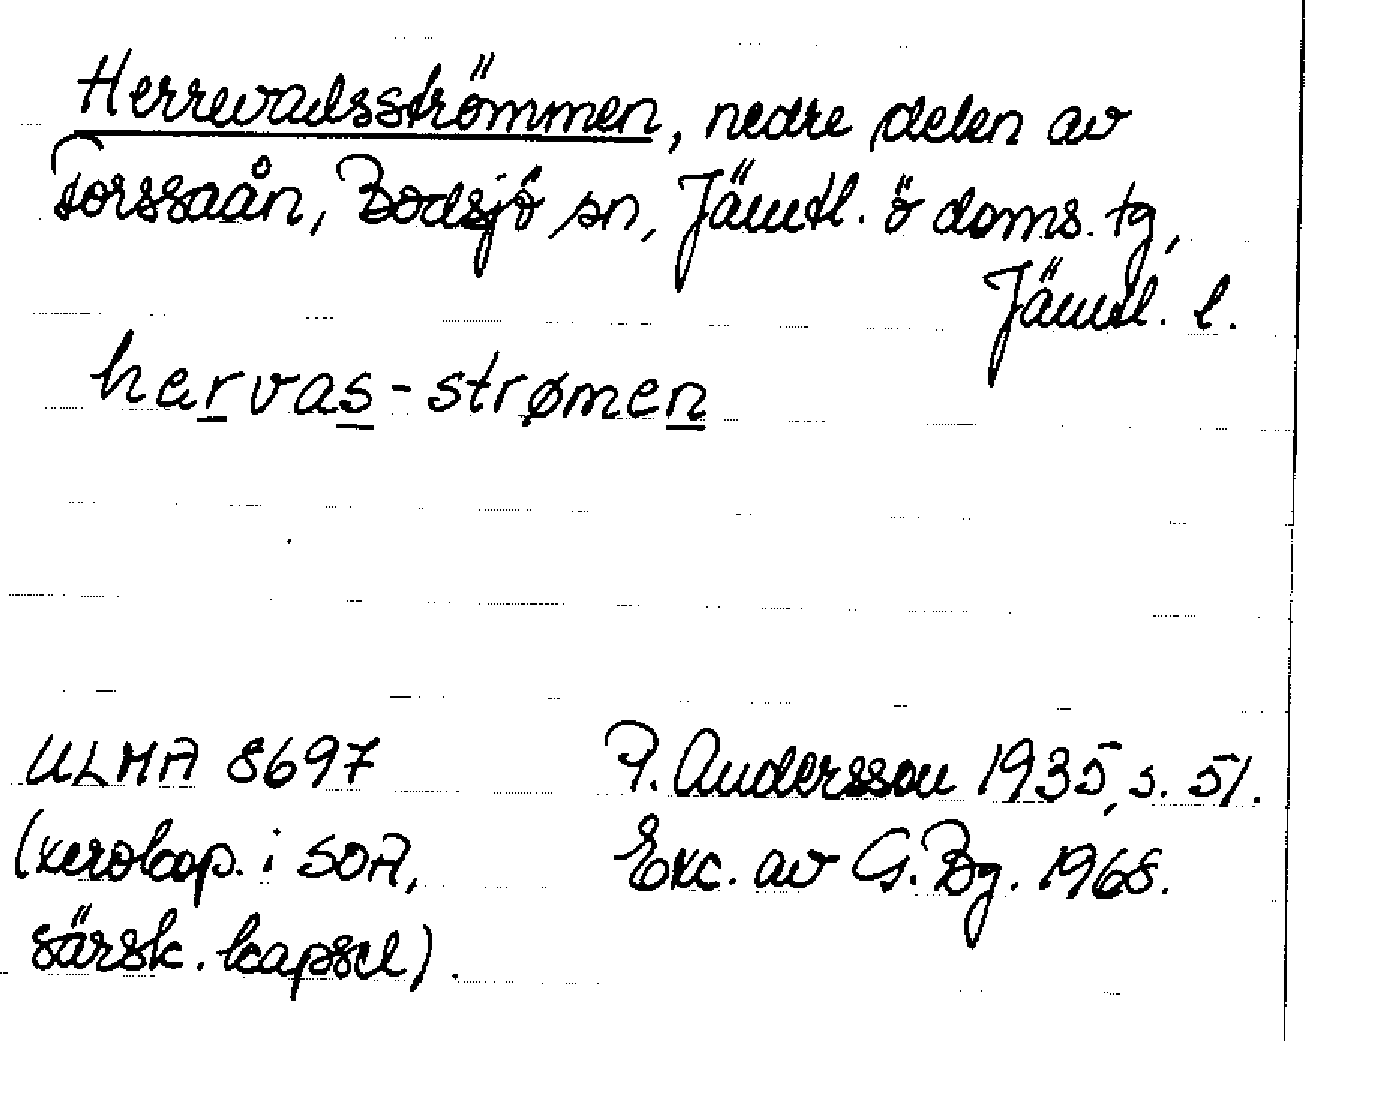 Herrevadsströmmen, nedre delen av
Forssaån, Bodsjö sn, Jämtl. ö doms. tg,
Jämtl. l.
hervas-strømen
ULMA 8697
(xerokop. i SOA,
särsk. kapsel).
P. Andersson 1935, s. 51.
Exc. av G. Bg. 1968.